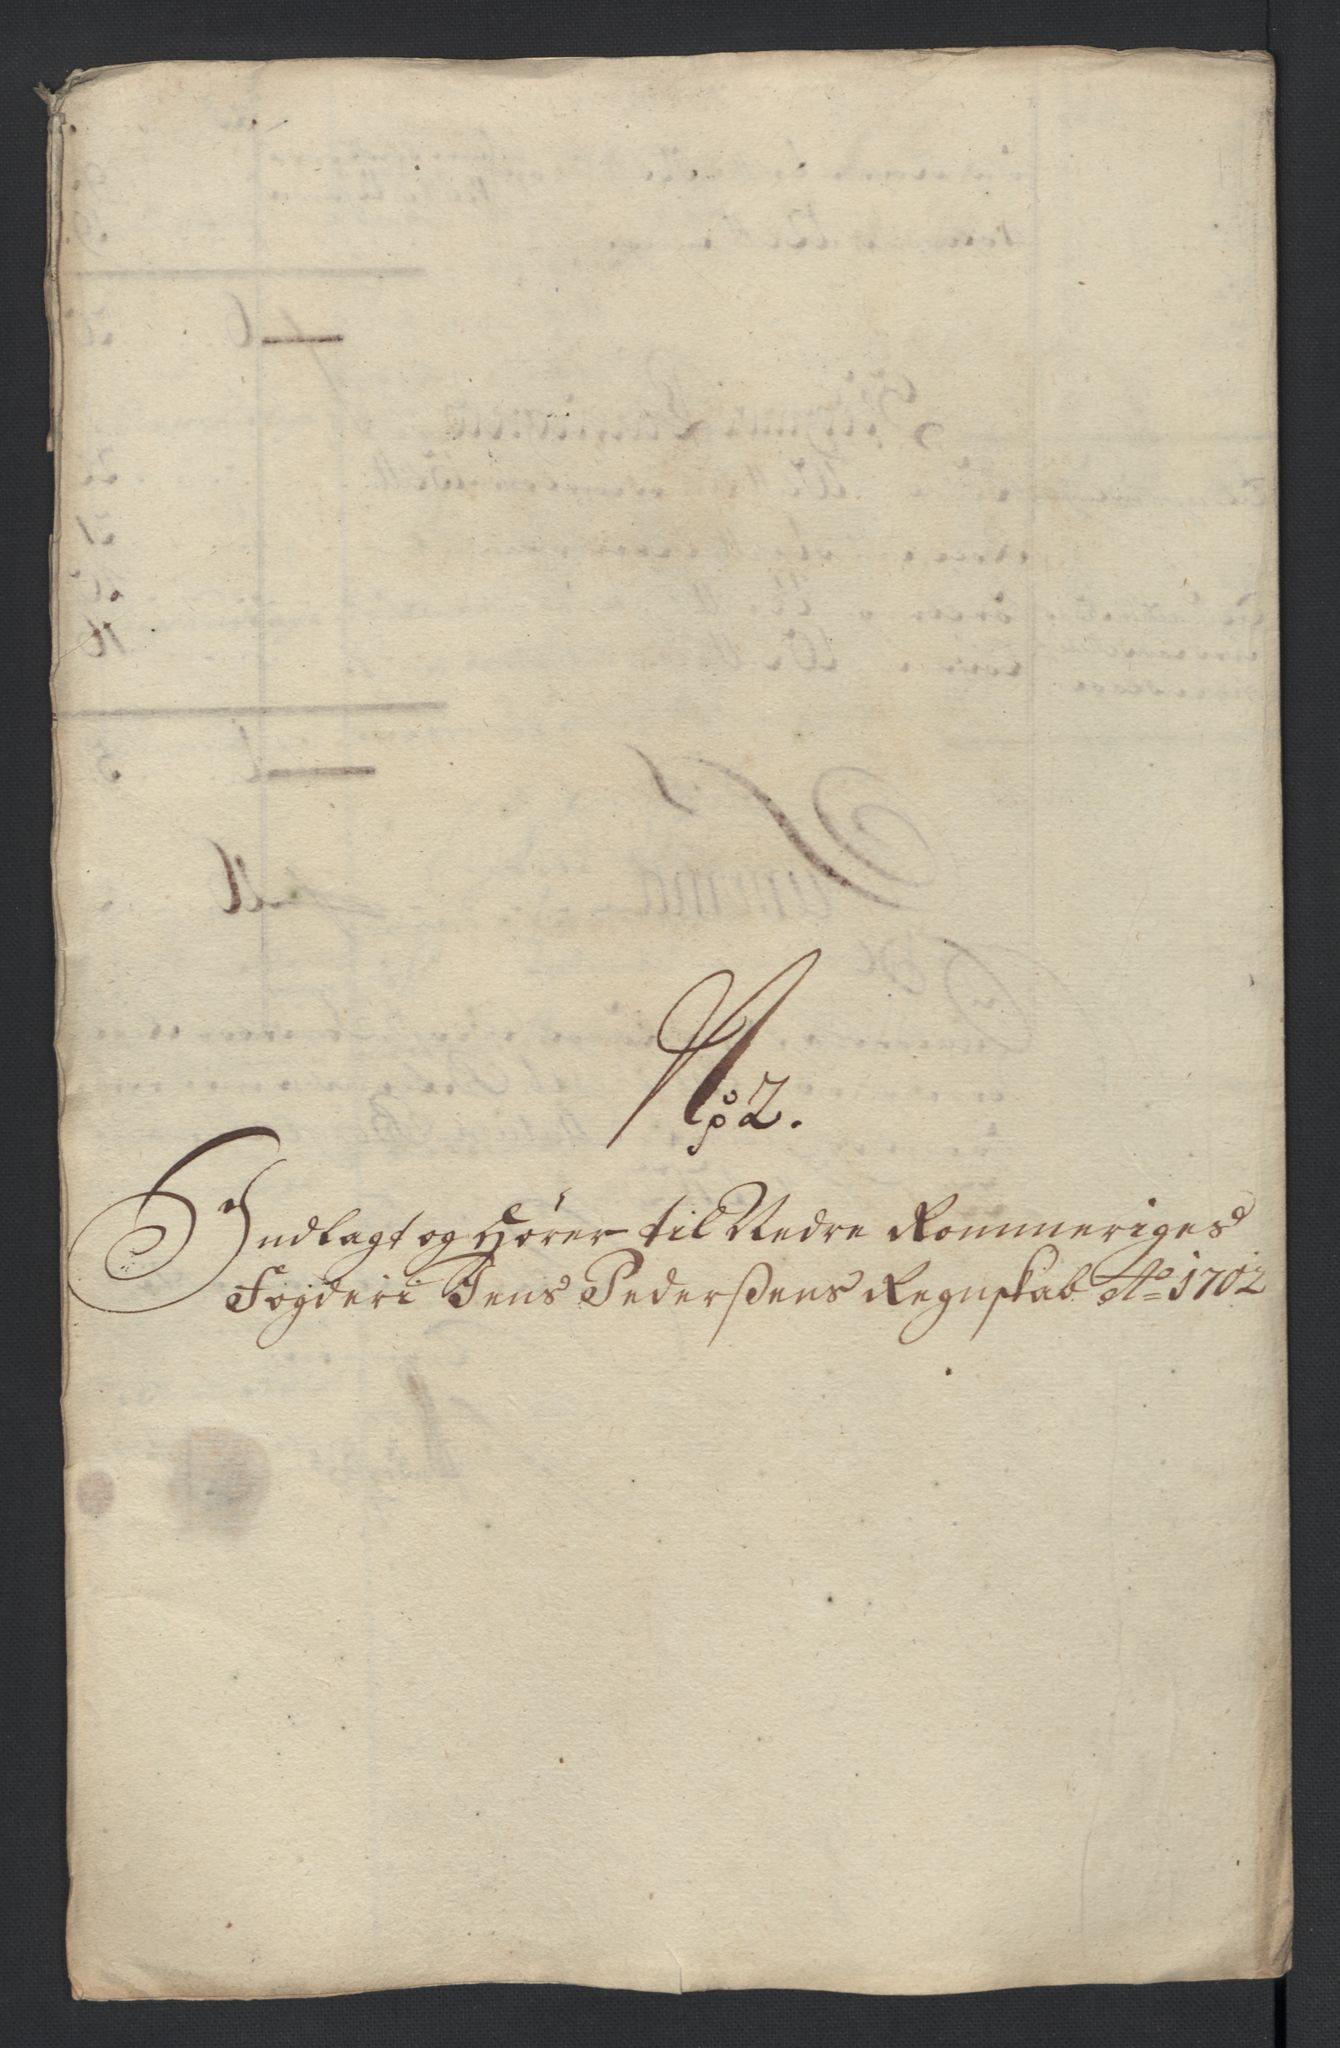 No 2.
Indlagt og Hører til Nedre Rommeriges
Fogderi Jens Pederßens Regnskab Ao 1702